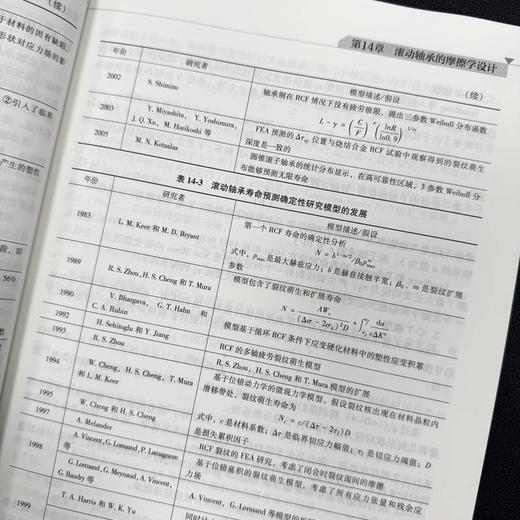 (续)
于材料的固有缺陷,
形状对应力场的影
②引入了临界
产生的塑性
段,即
56%
第14章 滚动轴承的摩擦学设计
(续)
年份 研究者 模型描述/假设
2002 S. Shimini 轴承钢在 RCF 情况下没有疲劳极限,提出三参数 Weibull 分布函数
L - γ = (C/F)^p (lnR/ln0.9)^{1/m}
2003 Y. Miyashita, Y. Yoshimura, J. Q. Xu, M. Horikoshi 等 FEA 预测的 Δτ 位置与烧结合金 RCF 试验中观察得到的裂纹萌生
深度是一致的
2005 M. N. Kotzalas 圆锥滚子轴承的统计分布显示,在高可靠性区域,3 参数 Weibull 分
布能够预测无限寿命
表 14-3 滚动轴承寿命预测确定性研究模型的发展
年份 研究者 模型描述/假设
1983 L. M. Keer 和 M. D. Bryant 第一个 RCF 寿命的确定性分析
式中,p_max 是最大赫兹应力;b 是赫兹接触半宽;β₀、m 是裂纹扩展
参数
1989 R. S. Zhou, H. S. Cheng 和 T. Mura 模型包含了裂纹萌生和扩展寿命
1990 V. Bhargava, G. T. Hahn 和
C. A. Rubin 模型基于循环 RCF 条件下应变硬化材料中的塑性应变积累
H. Sehitoglu 和 Y. Jiang RCF 的多轴疲劳裂纹萌生模型
R. S. Zhou R. S. Zhou, H. S. Cheng 和 T. Mura 模型的扩展
1994 W. Cheng, H. S. Cheng, T. Mura
和 L. M. Keer 基于位错动力学的微观力学模型。假设裂纹核出现在材料晶粒内
滑移带处,裂纹萌生寿命为
式中,c 是材料系数;Δτ 是临界切应力幅值;τ_f 是切应力阈值;D
是损失累积因子
1995 W. Cheng 和 H. S. Cheng
1997 A. Melander RCF 裂纹的 FEA 研究,考虑了闭合时裂纹面间的摩擦
1998 A. Vincent, G. Lormand, P. Lamagnere
等 基于位错塞积的裂纹萌生模型,考虑了所有应力张量和残余应
力场
G. Lormand, G. Meynaud, A. Vincent,
G. Baudry 等 A. Vincent, G. Lormand 等模型的
1999 T. A. Harris 和 W. K. Yu